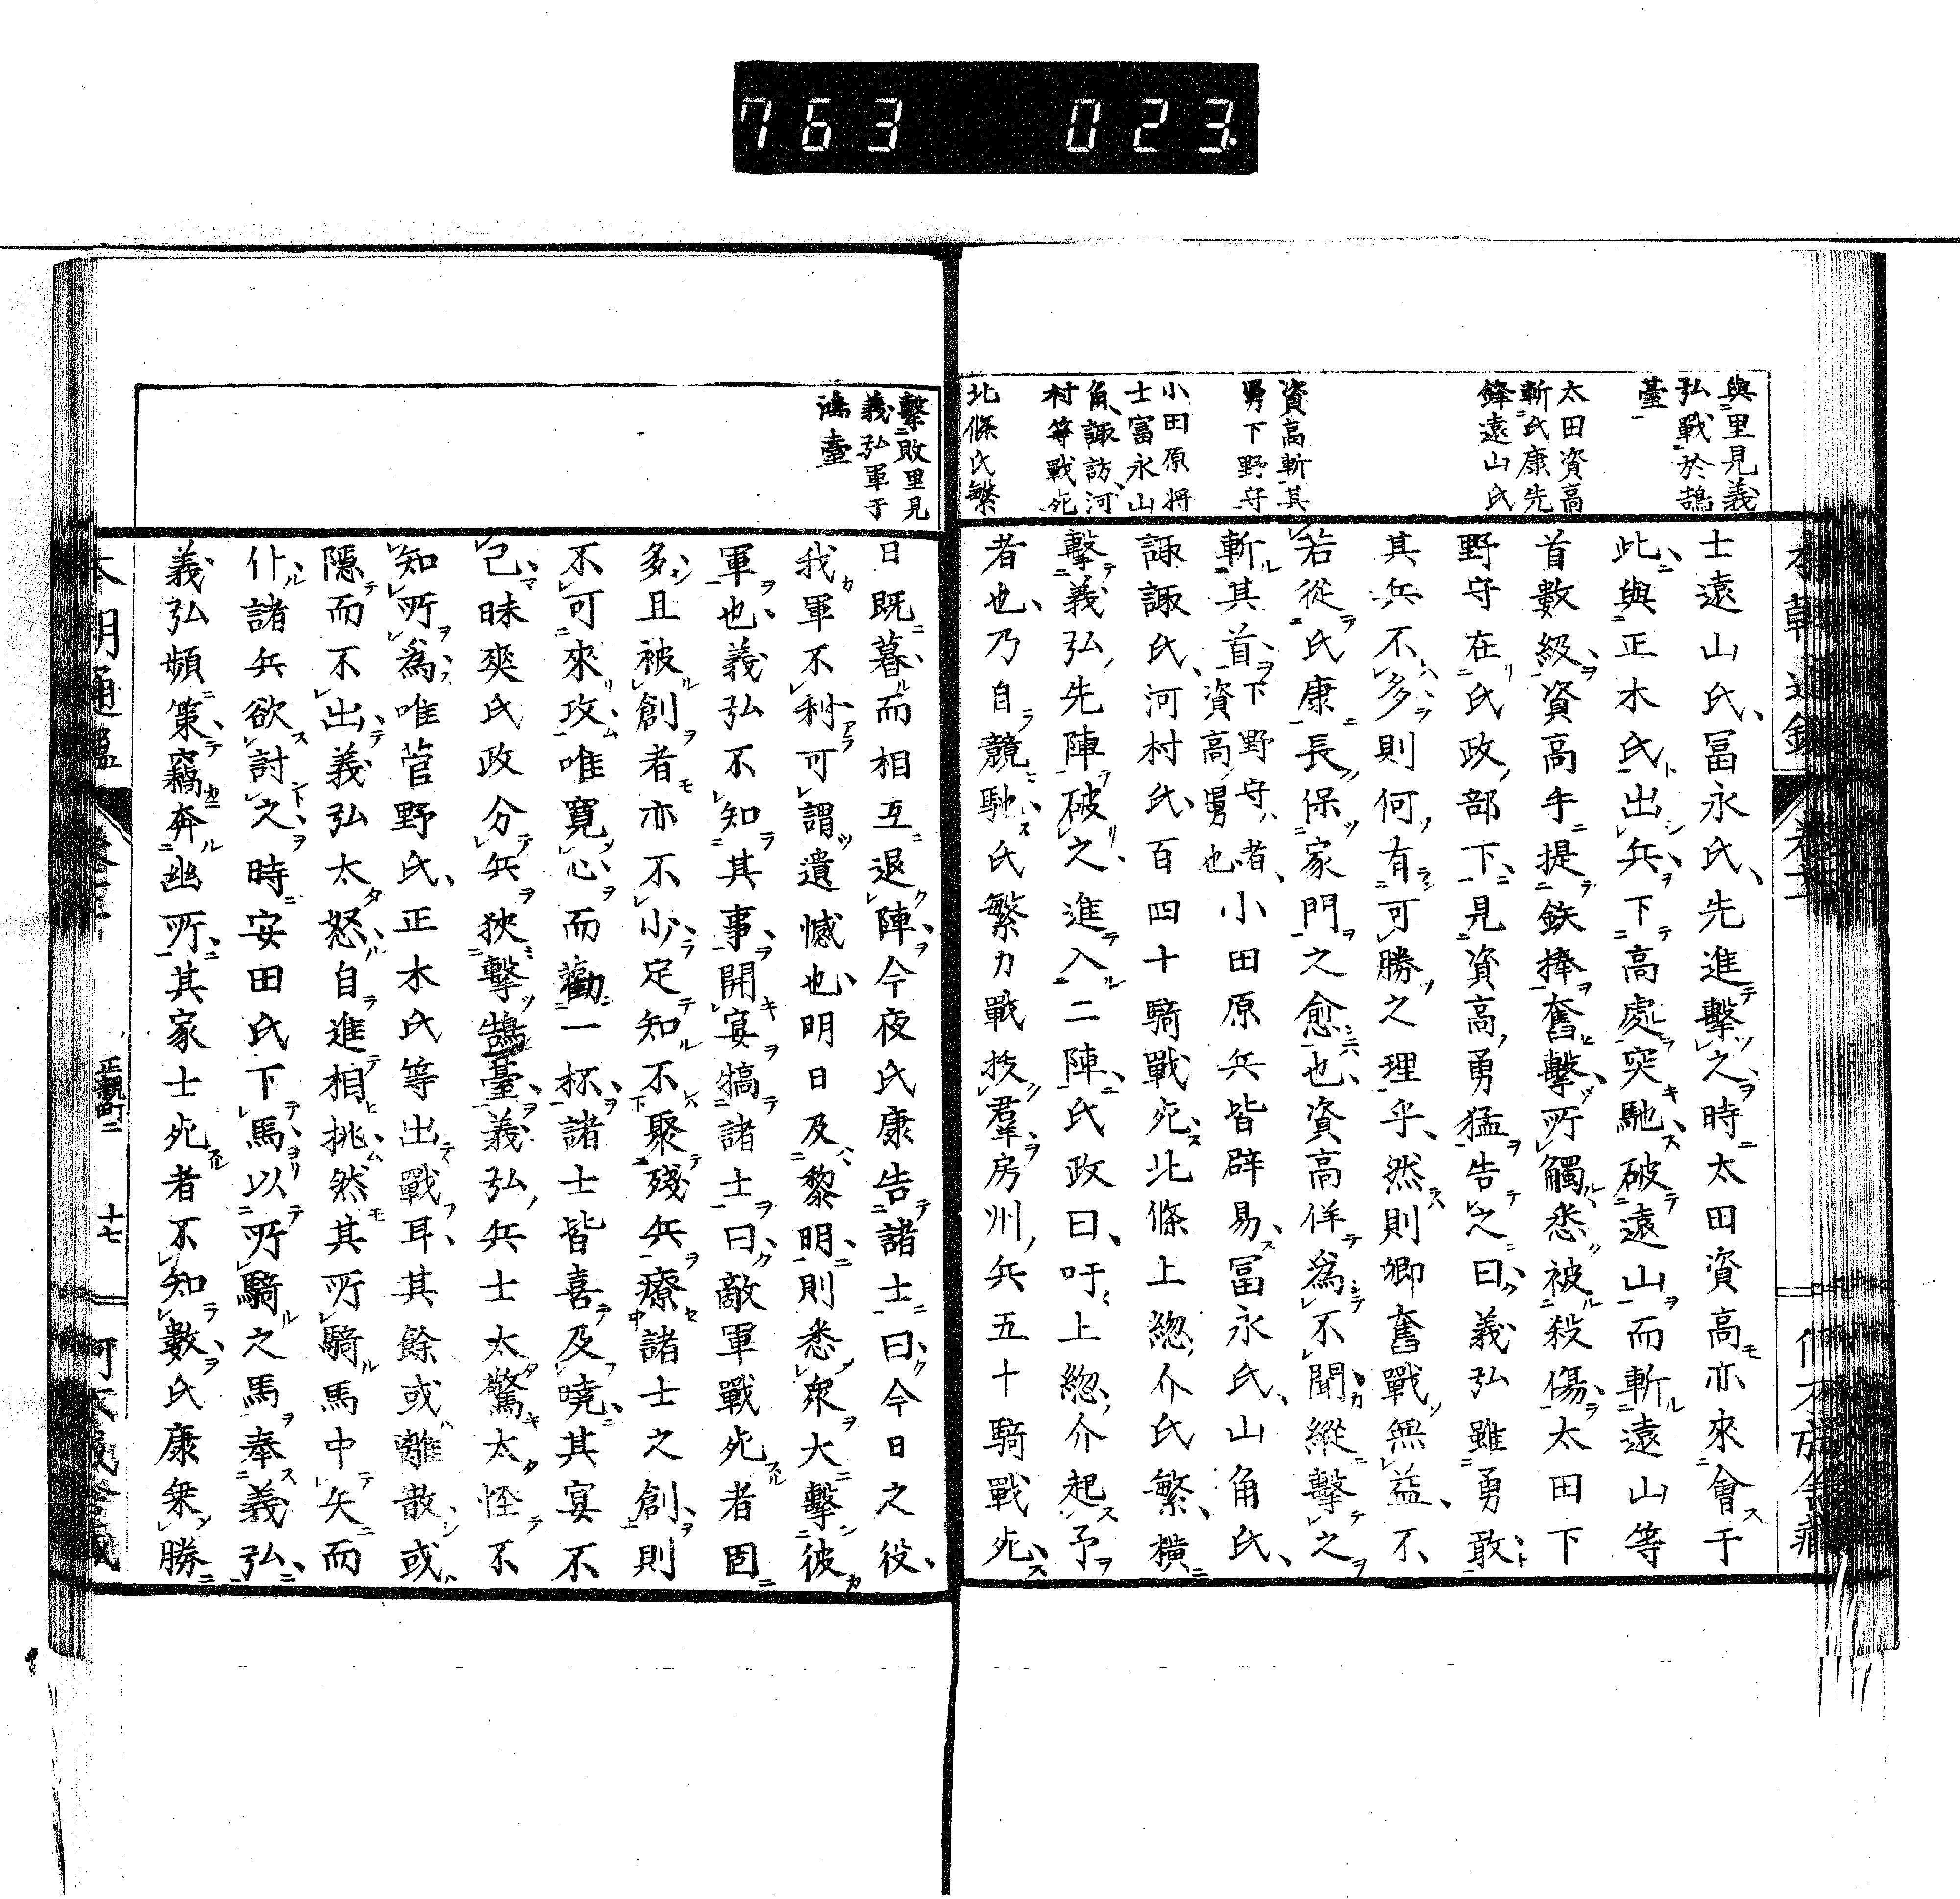 763 023
與里見義
弘戰於鵠
臺
太田資高
斬氏康先
鋒遠山氏
資高斬其
舅下野守
小田原将
士富永山
角諏訪河
村等戰死
北條氏繁
士遠山氏冨永氏先進擊之時太田資高亦來會于
此與正木氏出兵下高處突馳破遠山而斬遠山等
首數級資高手提鉄捧奮擊所觸悉被殺傷太田下
野守在氏政部下見資高勇猛告之曰義弘雖勇敢
其兵不多則何有可勝之理乎然則卿奮戰無益不
若從氏康長保家門之愈也資高佯為不聞縱擊之
斬其首下野守者資高舅也小田原兵皆辟易冨永氏山角氏
諏諏氏河村氏百四十騎戰死北條上総介氏繁横
擊義弘先陣破之進入二陣氏政曰吁上総介起予
者也乃自競馳氏繁力戰抜羣房州兵五十騎戰死
擊敗里見
義弘軍于
鴻臺
日既暮而相互退陣今夜氏康告諸士曰今日之役
我軍不利可謂遺憾也明日及黎明則悉衆大擊彼
軍也義弘不知其事開宴犒諸士曰敵軍戰死者固
多且被創者亦不少定知不聚殘兵療諸士之創則
不可來攻唯寛心而勸一杯諸士皆喜及曉其宴不
已昧爽氏政分兵狹擊鵠臺義弘兵士太驚太怪不
知所為唯菅野氏正木氏等出戰耳其餘或離散或
隱而不出義弘太怒自進相挑然其所騎馬中矢而
仆諸兵欲討之時安田氏下馬以所騎之馬奉義弘
義弘頻策竊奔幽所其家士死者不知數氏康乗勝
正親町二
十七